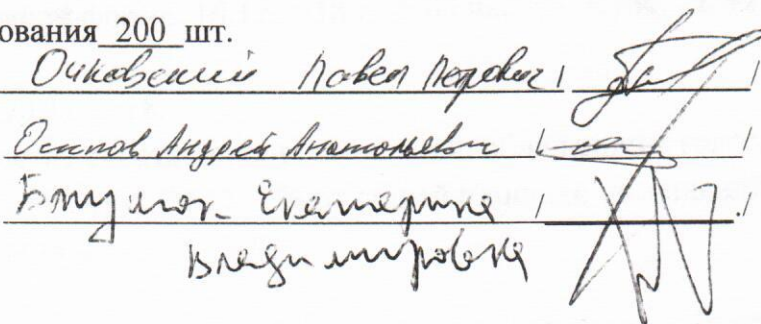 ования 200 шт.
Очковский Павел Петрович / /
Осипов Андрей Анатольевич / /
Екатерина / /
Владимировна